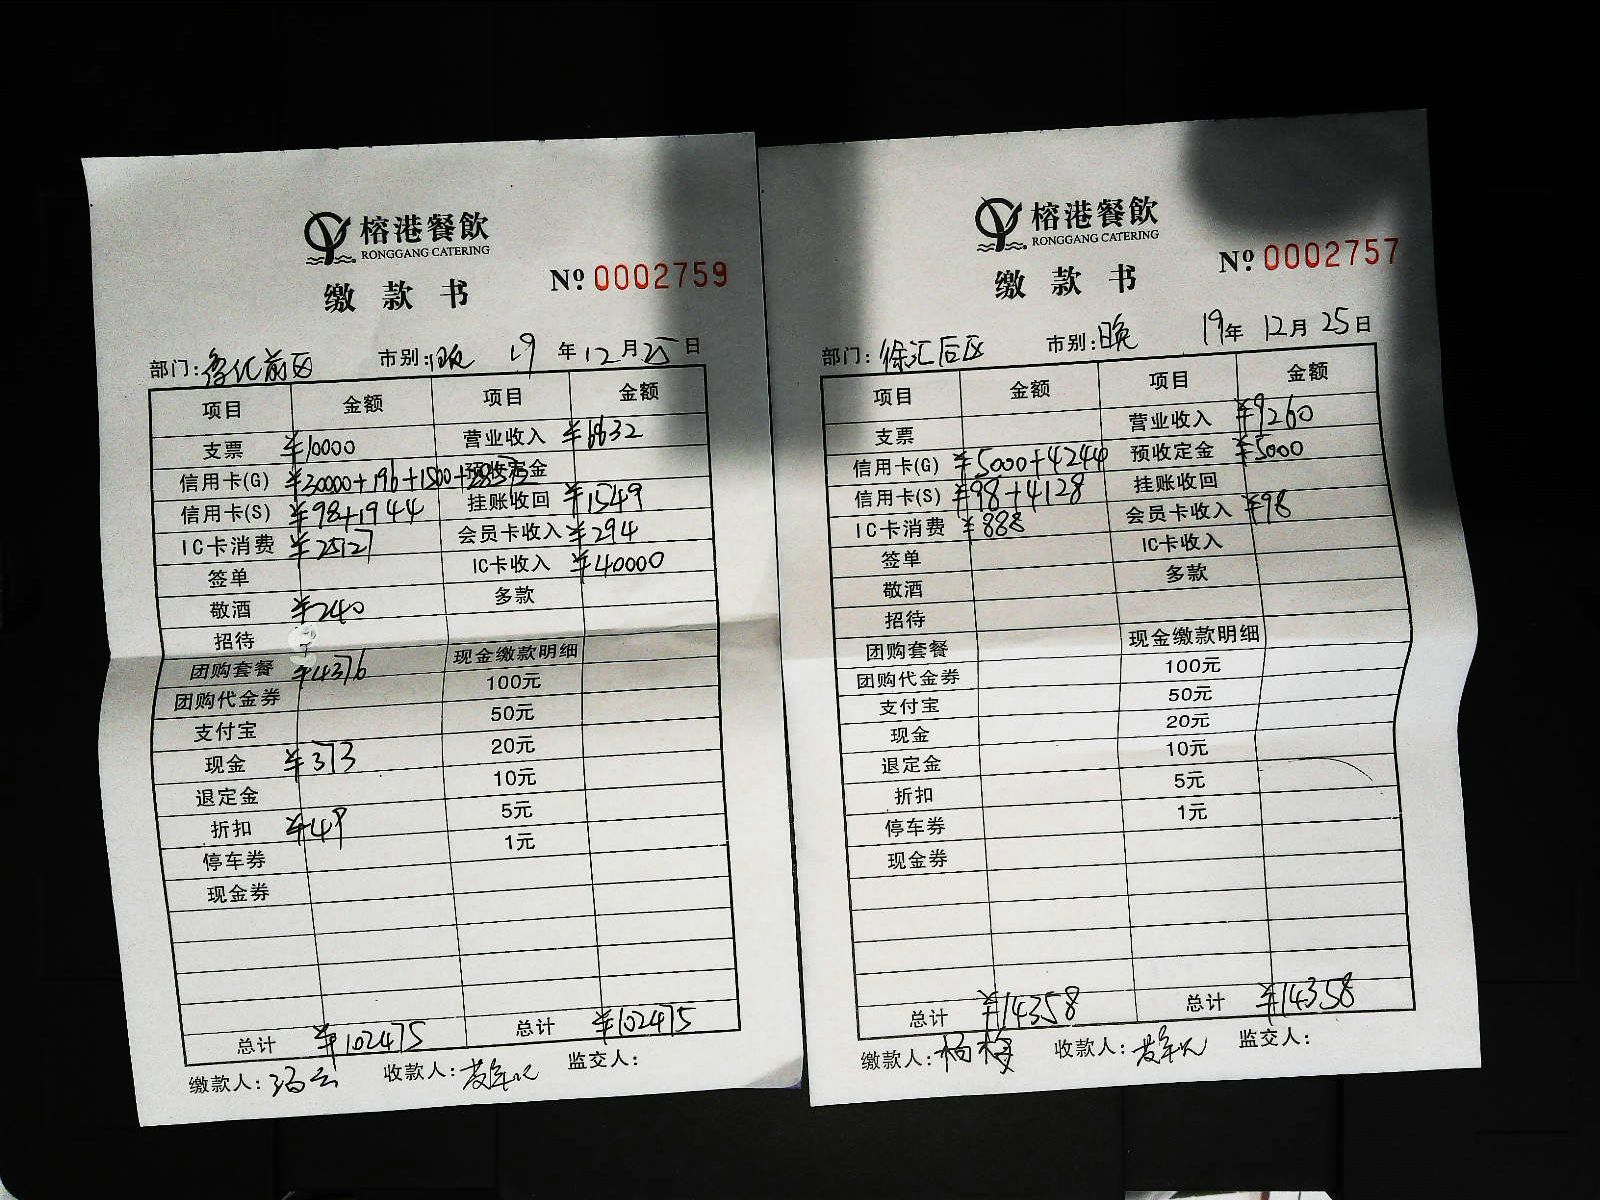 榕港餐飲
RONGGANG CATERING
缴款书
No 0002759
部门: 前区 市别: 晚 19年12月25日
项目 金额 项目 金额
支票 ¥10000 营业收入
信用卡(G) 预收定金
信用卡(S) ¥98+1944 挂账收回 ¥1549
IC卡消费 ¥25127 会员卡收入 ¥294
签单 IC卡收入 ¥40000
敬酒 ¥240 多款
招待
团购套餐 ¥4376 现金缴款明细
团购代金券 100元
支付宝 50元
现金 ¥373 20元
退定金 10元
折扣 ¥49 5元
停车券 1元
现金券
总计 ¥102475 总计 ¥102475
缴款人: 收款人: 监交人:
榕港餐飲
RONGGANG CATERING
缴款书
No 0002757
部门: 徐汇后区 市别: 晚 19年12月25日
项目 金额 项目 金额
支票 营业收入 ¥9260
信用卡(G) ¥5000+4244 预收定金 ¥5000
信用卡(S) ¥98+4128 挂账收回
IC卡消费 ¥888 会员卡收入 ¥98
签单 IC卡收入
敬酒 多款
招待
团购套餐 现金缴款明细
团购代金券 100元
支付宝 50元
现金 20元
退定金 10元
折扣 5元
停车券 1元
现金券
总计 ¥14358 总计 ¥14358
缴款人: 杨梅 收款人: 监交人: